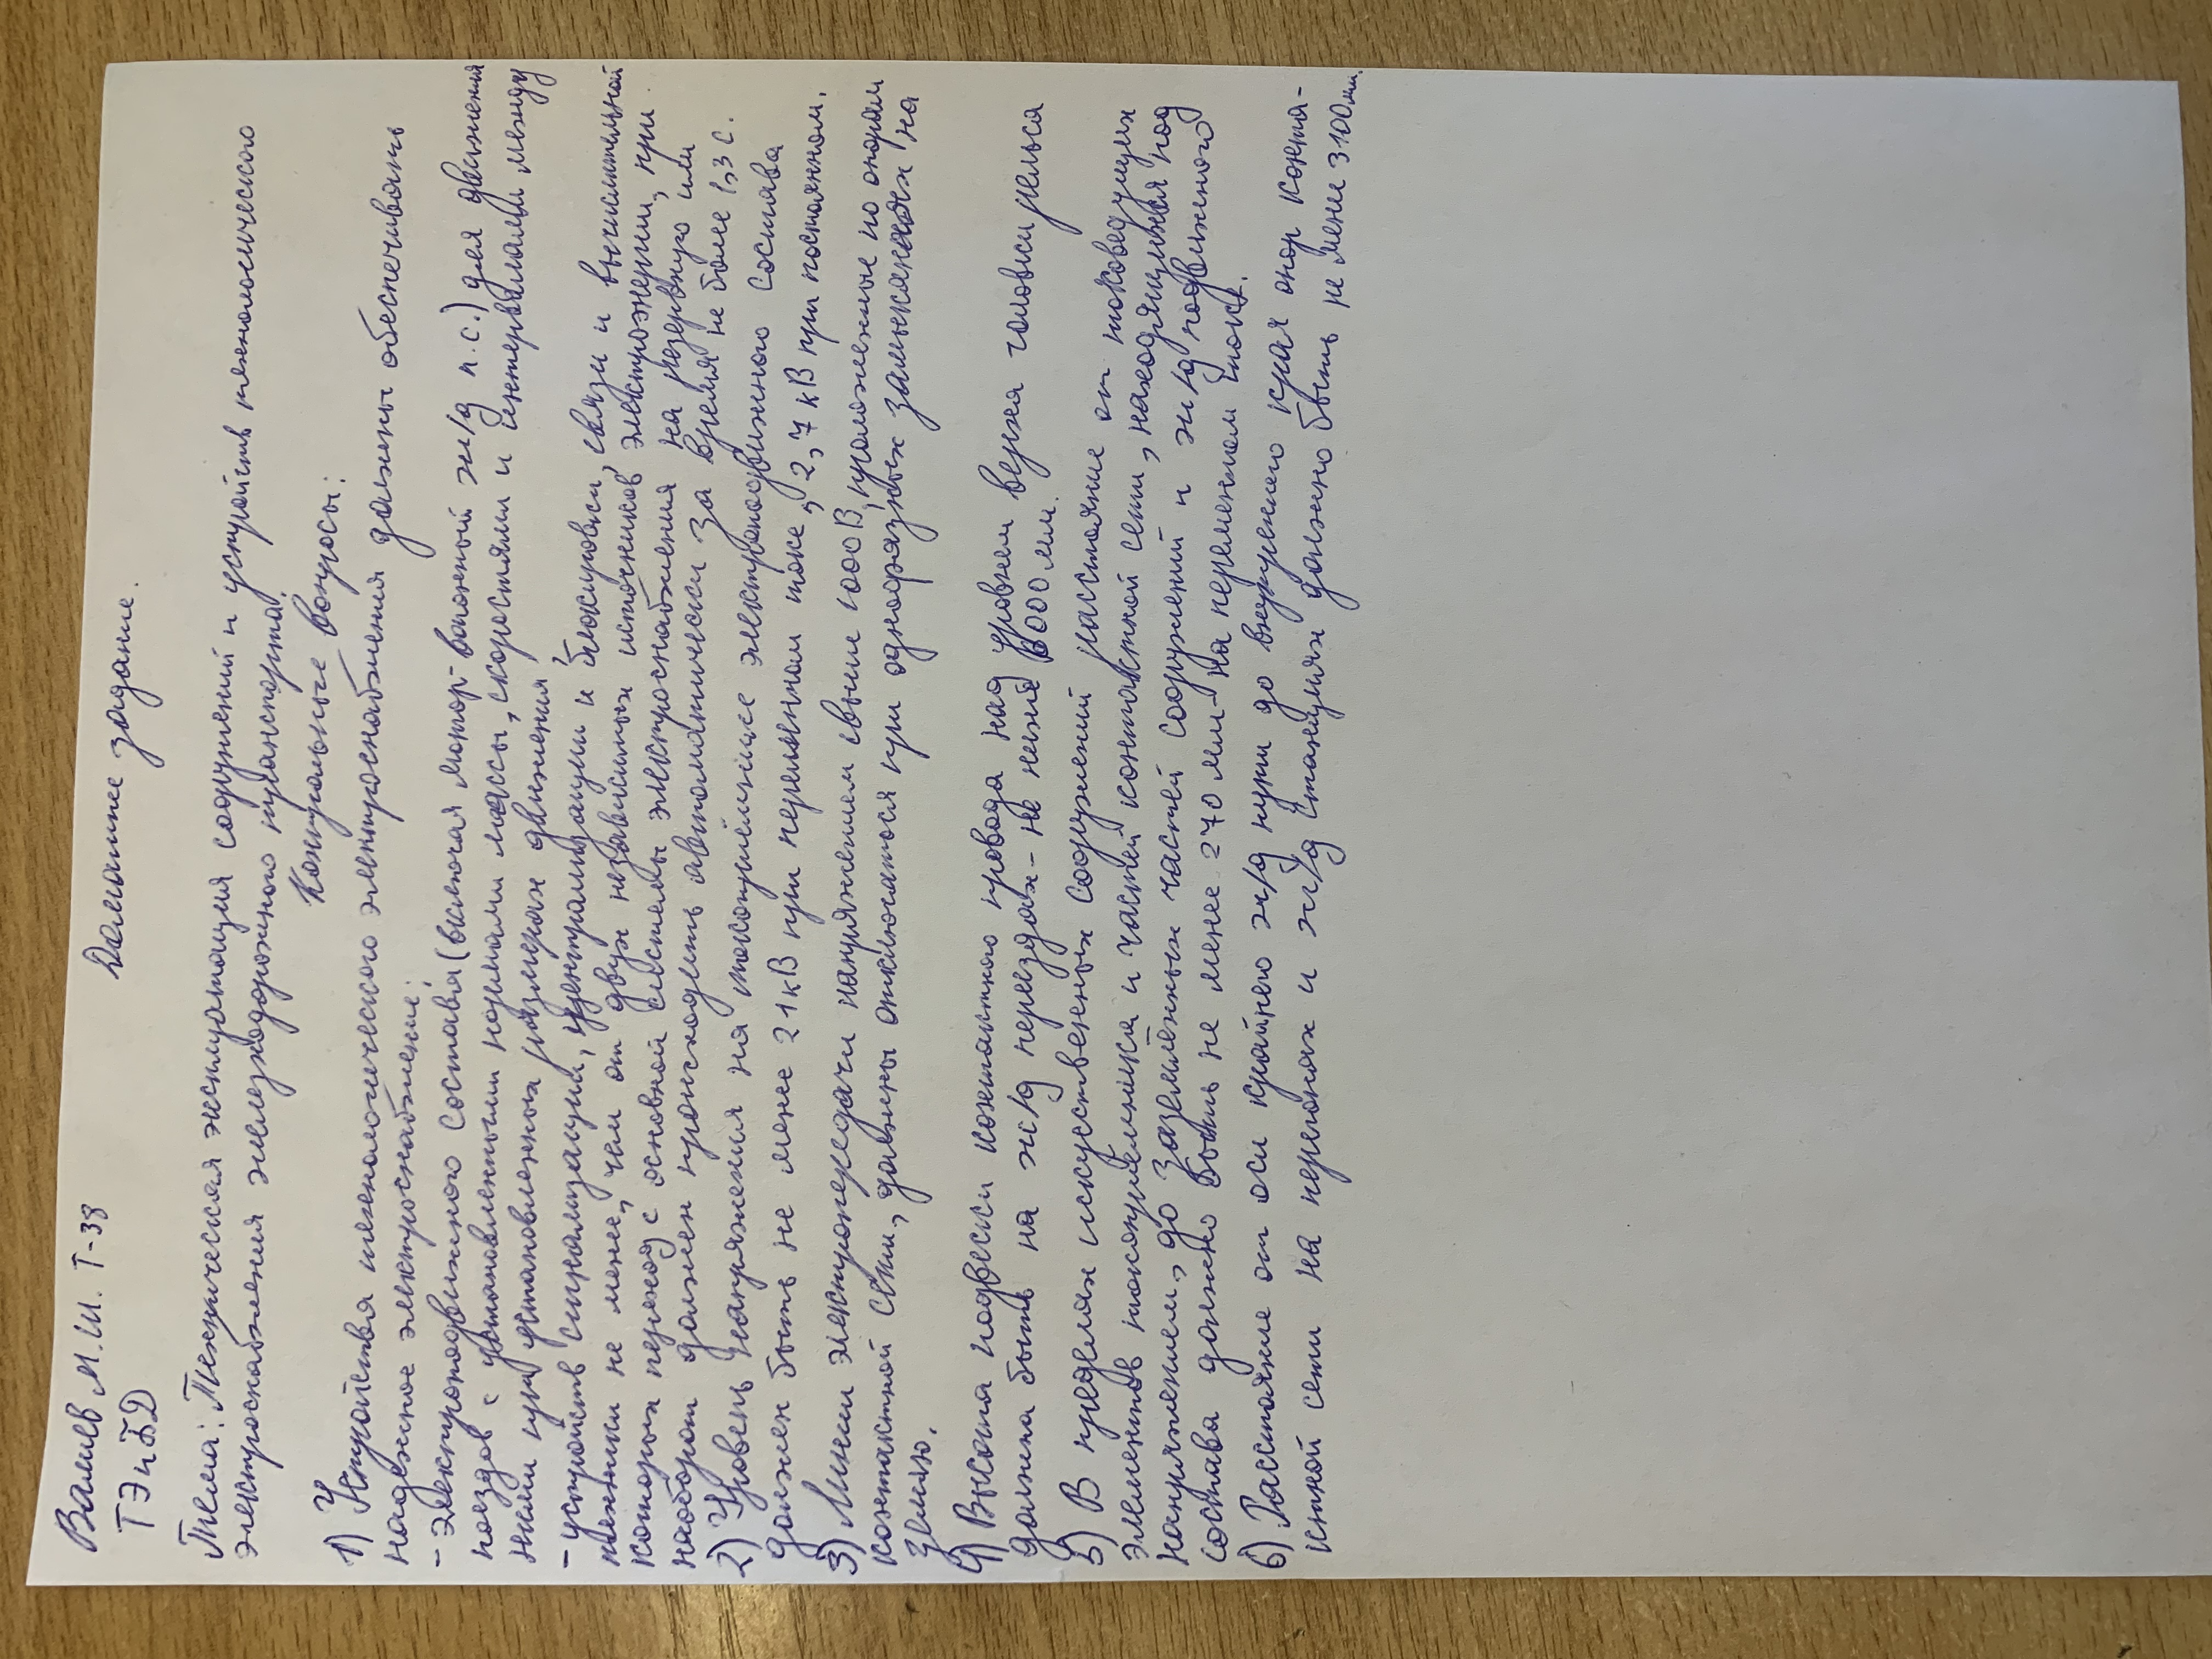 Валиев М.Ш. Т-38 Домашнее задание.
ТЭиБД
Тема: Техническая эксплуатация сооружений и устройств технологического
электроснабжения железнодорожного транспорта.
Контрольные вопросы:
1) Устройства технологического электроснабжения должны обеспечивать
надежное электроснабжение:
- электроподвижного состава (включая мотор-вагонный ж/д п.с.) для движения
поездов с установленными нормами массы, скоростями и интервалами между
ними при установленных размерах движения;
- устройств сигнализации, централизации и блокировки, связи и вычислительной
техники не менее, чем от двух независимых источников электроэнергии, при
которых переход с основной системы электроснабжения на резервную или
наоборот должен происходить автоматически за время не более 1,3 с.
2) Уровень напряжения на токоприёмнике электроподвижного состава
должен быть не менее 21 кВ при переменном токе, 2,7 кВ при постоянном.
3) Линии электропередачи напряжением свыше 1000 В, проложенные по опорам
контактной сети, должны отключаться при однофазных замыканиях на
землю.
4) Высота подвески контактного провода над уровнем верха головки рельса
должна быть на ж/д переездах - не ниже 6000 мм.
5) В пределах искусственных сооружений расстояние от токоведущих
элементов токоприемника и частей контактной сети, находящихся под
напряжением, до заземлённых частей сооружений и ж/д подвижного
состава должно быть не менее 270 мм - на переменном токе.
6) Расстояние от оси крайнего ж/д пути до внутреннего края опор конта-
ктной сети на перегонах и ж/д станциях должно быть не менее 3100 мм.